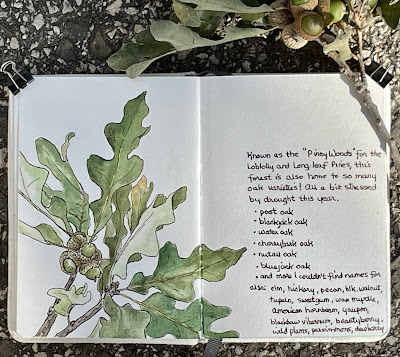 Known as the "Piney Woods" for the
Loblolly and Long-leaf Pines, this
forest is also home to so many
oak varieties! All a bit stressed
by drought this year.
• post oak
• blackjack oak
• water oak
• cherrybark oak
• nuttall oak
• bluejack oak
• and more I couldn't find names for
also: elm, hickory, pecan, blk. walnut,
tupelo, sweetgum, wax myrtle,
american hornbeam, yaupon,
blackhaw viburnum, beautyberry,
wild plums, persimmons, dewberry